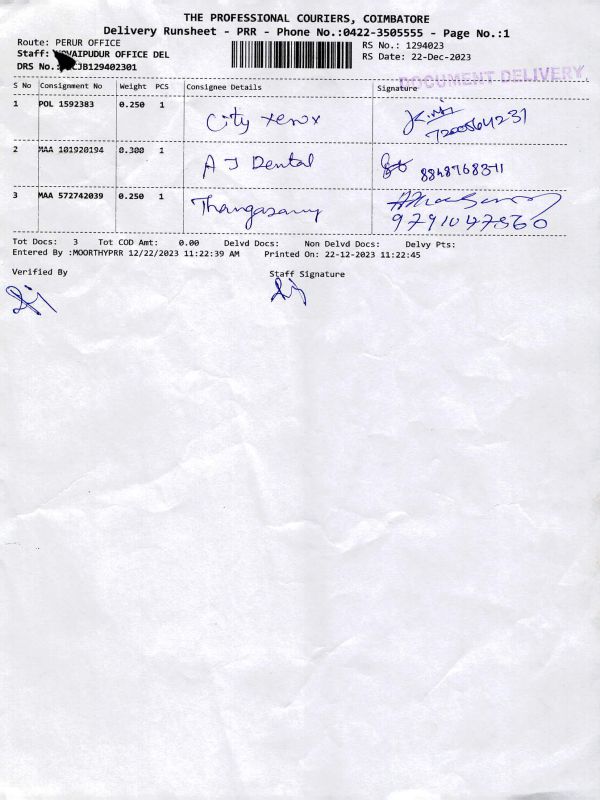 THE PROFESSIONAL COURIERS, COIMBATORE
Delivery Runsheet - PRR - Phone No.:0422-3505555 - Page No.:1
Route: PERUR OFFICE
RS No.: 1294023
Staff: OFFICE DEL
RS Date: 22-Dec-2023
DRS No.: JB129402301
DOCUMENT DELIVERY
S No Consignment No Weight PCS Consignee Details Signature
1 POL 1592383 0.250 1 City xerox
2 MAA 101920194 0.300 1 A J Dental
3 MAA 572742039 0.250 1 Thangasamy
9791047560
Tot Docs: 3 Tot COD Amt: 0.00 Delvd Docs: Non Delvd Docs: Delvy Pts:
Entered By :MOORTHYPRR 12/22/2023 11:22:39 AM Printed On: 22-12-2023 11:22:45
Verified By Staff Signature